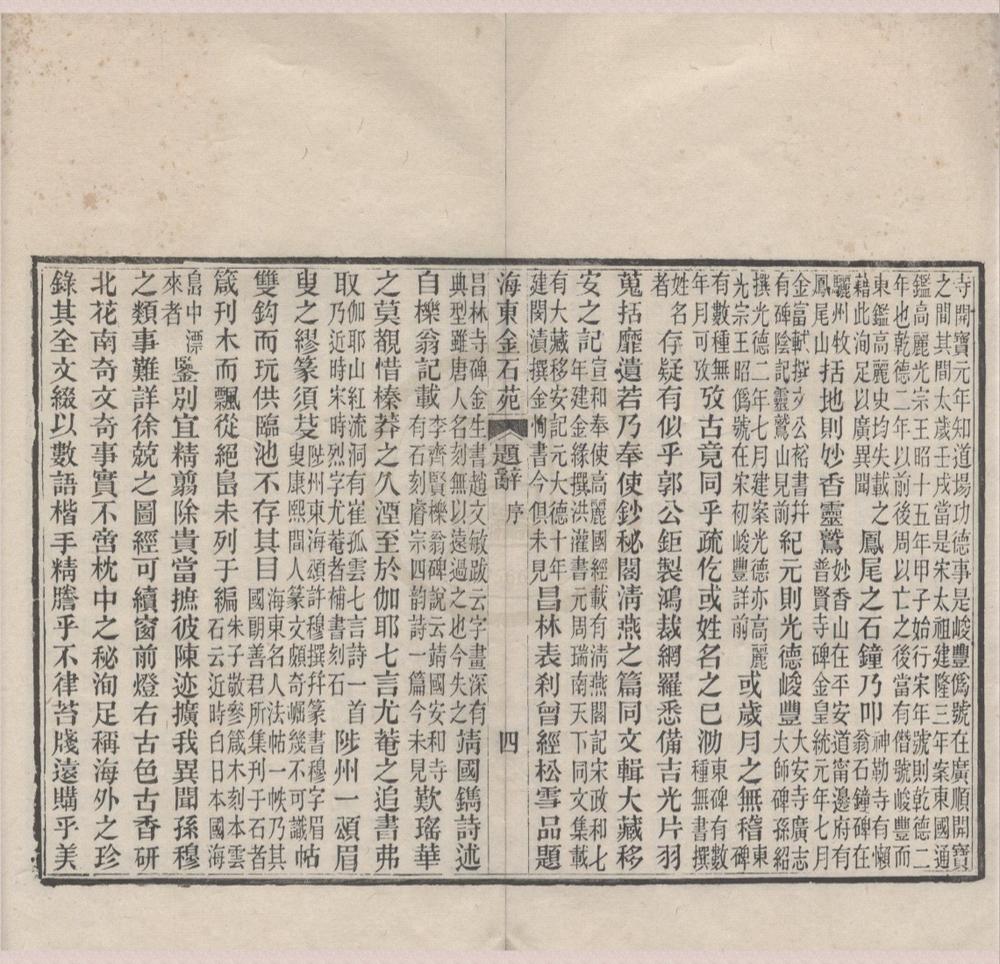 寺開寶元年知道場功德事是峻豐僞號在廣順開寶
之間其間太歲壬戌當是宋太祖建隆三年案東國通
鑑高麗光宗王昭十五年甲子始行宋年號則乾德二
年也乾德二年以前後周以亡之後當有僭號峻豐而
東鑑高麗史均失載之
藉此洵足以廣異聞
鳳尾之石鐘乃叩
神勒寺有懶翁石鐘碑在
驪州牧
鳳尾山
括地則妙香靈鷲
妙香山在平安道甯邊府有
普賢寺碑金皇統元年七月
金富軾撰文公裕書幷
有碑陰記靈鷲山見前
紀元則光德峻豐
大安寺廣志
大師碑孫紹
撰光德二年七月建案光德亦高麗
光宗王昭僞號在宋初峻豐詳前
或歲月之無稽
東碑
有數種無
年月可攷
攷古竟同乎疏仡或姓名之已泐
東碑有數
種無書撰
姓名
者
存疑有似乎郭公鉅製鴻裁網羅悉備吉光片羽
蒐括靡遺若乃奉使鈔秘閣淸燕之篇同文輯大藏移
安之記
宣和奉使高麗國經載有淸燕閣記宋政和七
年建金緣撰洪灌書元周瑞南天下同文集載
有大藏移安記元大德十年
建閔漬撰金恂書今俱未見
昌林表刹曾經松雪品題
海東金石苑
題辭
序
四
昌林寺碑金生書趙文敏跋云字畫深有
典型雖唐人名刻無以遠過之也今失之
靖國鐫詩述
自櫟翁記載
李齊賢櫟翁碑說云靖國安和寺
有石刻睿宗四韵詩一篇今未見
歎瑤華
之莫覩惜榛莽之久湮至於伽耶七言尤菴之追書弗
取
伽耶山紅流洞有崔孤雲七言詩一首
乃近時宋時烈字尤菴者補書刻石
陟州一頌眉
叟之繆篆須芟
陟州東海頌許穆撰幷篆書穆字眉
叟康熙閒人篆文頗奇崛幾不可識
帖
雙鉤而玩供臨池不存其目
海東名人法帖一帙乃其
國朗善君所集刊于石者
箴刊木而飄從絕島未列于編
朱子敬參箴木刻本雲
石云近時白日本國海
島中漂
來者
鑒別宜精翦除貴當摭彼陳迹擴我異聞孫穆
之類事難詳徐兢之圖經可續窗前燈右古色古香硏
北花南奇文奇事實不啻枕中之秘洵足稱海外之珍
錄其全文綴以數語楷手精謄乎不律苔牋遠購乎美